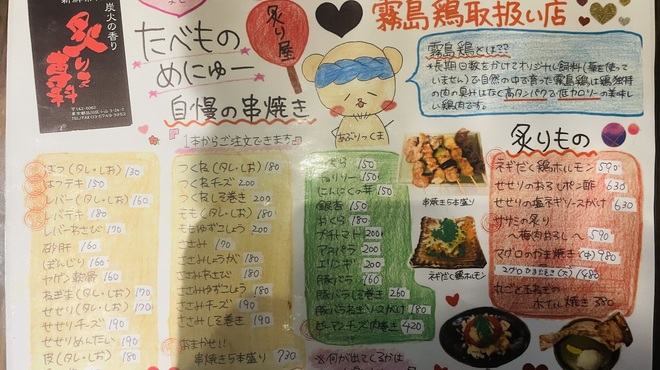 炭火の香り
炙りま
たべもの
めにゅー
炙り屋
霧島鶏取扱い店
霧島鶏とは??
・長期日数をかけてオリジナル飼料(薬を使って
いません)で自然の中で育った霧島鶏は鶏独特
の肉の臭みはなく高タンパクで低カロリーの美味し
い鶏肉です。
自慢の串焼き
1本からご注文できます
あぶりっくま
はつ(タレ・しお) 130
はつテキ 150
レバー(タレ・しお) 160
レバテキ 180
レバーわさび 190
砂肝 160
ぼんじり 160
ヤゲン軟骨 160
ねぎま(タレ・しお) 190
せせり(タレ・しお) 170
せせりチーズ 190
せせりめんたい 190
皮(タレ・しお) 180
つくね(タレ・しお) 180
つくねチーズ 200
つくねしそ巻き 200
もも(タレ・しお) 180
ももゆずこしょう 200
ささみ 170
ささみしょうが 180
ささみわさび 180
ささみゆずこしょう 180
ささみチーズ 190
ささみしそ巻き 190
おまかせ!!
串焼き5本盛り 730
150
150
にんにくの芽 150
銀杏 160
おくら 180
プチトマト 200
アスパラ 200
エリンギ 200
豚バラ 160
豚バラしそ巻き 260
豚バラねぎソースがけ 180
ピーマンチーズ肉巻き 420
※何が出てくるかは
串焼き5本盛り
ネギだく鶏ホルモン
炙りもの
ネギだく鶏ホルモン 590
せせりのおろしポン酢 630
せせりの塩ネギソースがけ 630
ササミの炙り
〜梅肉おろし〜 590
マグロのかま焼き(中) 980
マグロのかま焼き(大) 1480
丸ごと玉ねぎの
ホイル焼き 380